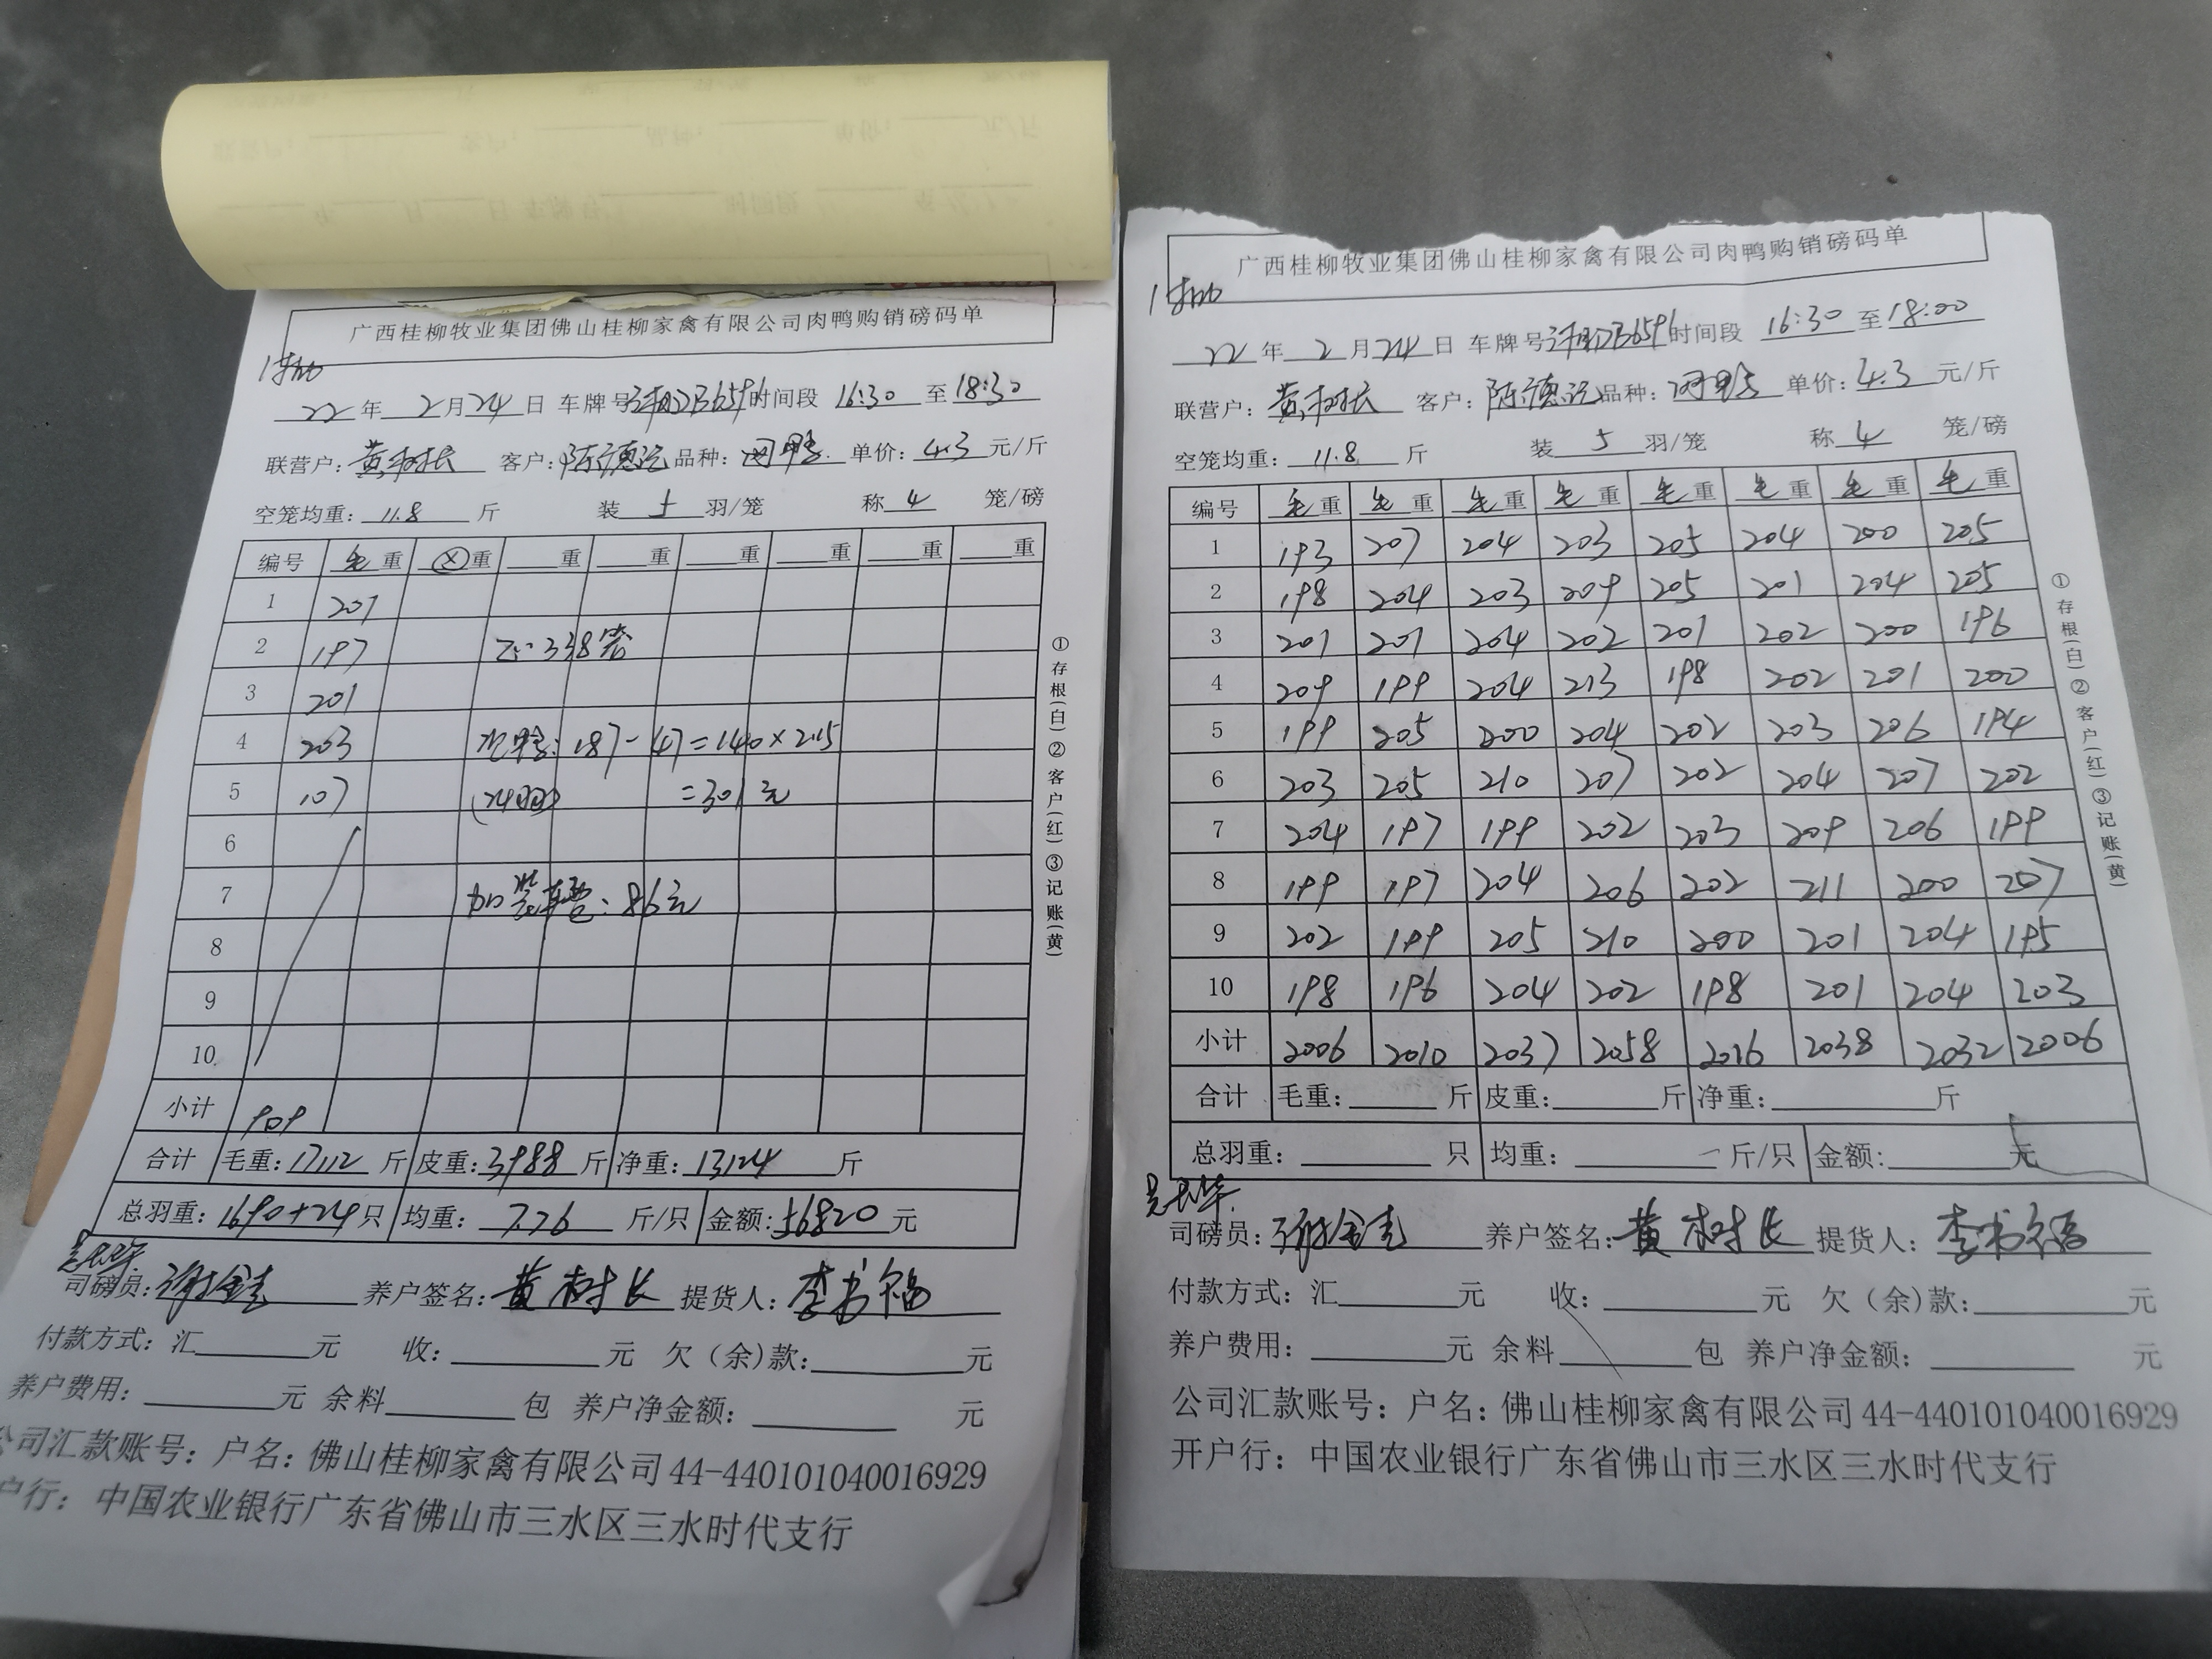 广西桂柳牧业集团佛山桂柳家禽有限公司肉鸭购销磅码单
22年2月24日 车牌号 时间段 16:30 至 18:30
联营户:黄树长 客户:陈德 品种: 单价:4.3 元/斤
空笼均重:11.8 斤 装 5 羽/笼 称 4 笼/磅
编号 毛重 重 重 重 重 重 重 重
1 207
2 197 338笼
3 201
4 203 187-47=140×2.15
5 107 (24羽) =301元
6
7 加装车费:86元
8
9
10
小计 909
合计 毛重:17112 斤 皮重:3988 斤 净重:13124 斤
总羽重:1690+24 只 均重:7.76 斤/只 金额:56820 元
司磅员: 养户签名:黄树长 提货人:李书福
付款方式:汇 元 收: 元 欠(余)款: 元
养户费用: 元 余料 包 养户净金额: 元
公司汇款账号:户名:佛山桂柳家禽有限公司 44-440101040016929
户行:中国农业银行广东省佛山市三水区三水时代支行
①存根(白)②客户(红)③记账(黄)
广西桂柳牧业集团佛山桂柳家禽有限公司肉鸭购销磅码单
22年2月24日 车牌号 时间段 16:30 至 18:00
联营户:黄树长 客户:陈德 品种: 单价:4.3 元/斤
空笼均重:11.8 斤 装 5 羽/笼 称 4 笼/磅
编号 毛重 毛重 毛重 毛重 毛重 毛重 毛重 毛重
1 193 207 204 203 205 204 200 205
2 198 204 203 209 205 201 204 205
3 201 207 204 202 201 202 200 196
4 209 199 204 213 198 202 201 200
5 199 205 200 204 202 203 206 194
6 203 205 210 207 202 204 207 202
7 204 197 199 202 203 209 206 199
8 199 197 204 206 202 211 200 207
9 202 199 205 210 200 201 204 195
10 198 196 204 202 198 201 204 203
小计 2006 2010 2037 2058 2016 2038 2032 2006
合计 毛重: 斤 皮重: 斤 净重: 斤
总羽重: 只 均重: 斤/只 金额: 元
司磅员: 养户签名:黄树长 提货人:李书福
付款方式:汇 元 收: 元 欠(余)款: 元
养户费用: 元 余料 包 养户净金额: 元
公司汇款账号:户名:佛山桂柳家禽有限公司 44-440101040016929
开户行:中国农业银行广东省佛山市三水区三水时代支行
①存根(白)②客户(红)③记账(黄)